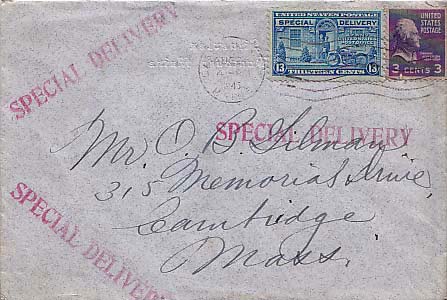 SPECIAL DELIVERY
UNITED STATES POSTAGE
SPECIAL DELIVERY
13 THIRTEEN CENTS 13
UNITED STATES
POSTAGE
3 CENTS 3
SPECIAL DELIVERY
Mr. O. B. Gilman
315 Memorial Drive,
Cambridge
Mass.
SPECIAL DELIVERY